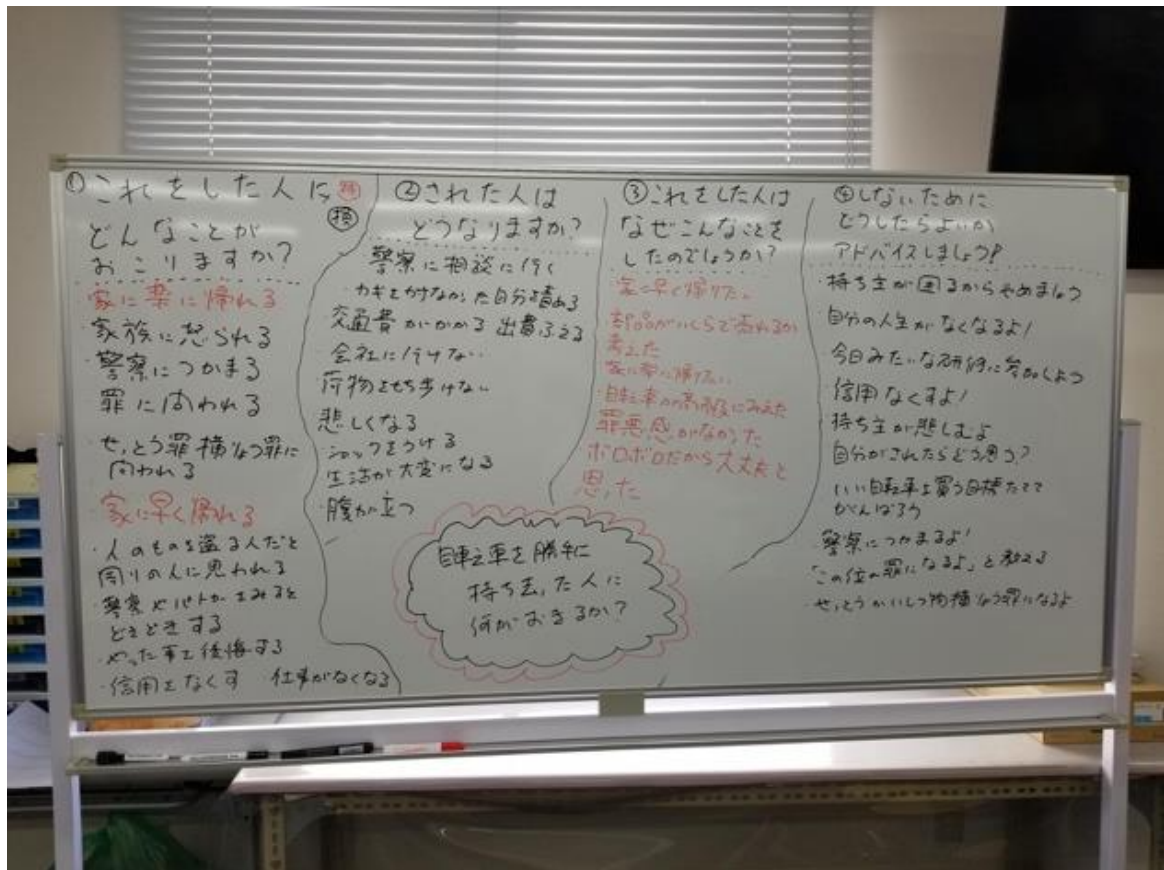 ①これをした人に 得
損
どんなことが
おこりますか?
家に楽に帰れる
家族に怒られる
警察につかまる
罪に問われる
せっとう罪横りょう罪に
問われる
家に早く帰れる
・人のものを盗る人だと
周りの人に思われる
・警察やパトカーをみると
どきどきする
・やった事を後悔する
・信用をなくす ・仕事がなくなる
②された人は
どうなりますか?
警察に相談に行く
カギをかけなかった自分を責める
交通費がかかる 出費ふえる
・会社に行けない
荷物をもち歩けない
悲しくなる
ショックをうける
生活が大変になる
・腹が立つ
③これをした人は
なぜこんなことを
したのでしょうか?
家に早く帰りたい
部品がいくらで売れるか
考えた
家に楽に帰りたい
・自転車が高級にみえた
罪悪感がなかった
ボロボロだから大丈夫と
思った
④しないために
どうしたらよいか
アドバイスしましょう!
・持ち主が困るからやめましょう
自分の人生がなくなるよ!
・今日みたいな研修に参加しよう
・信用なくすよ!
持ち主が悲しむよ
自分がされたらどう思う?
いい自転車を買う目標たてて
がんばろう
・警察につかまるよ!
「この位の罪になるよ」と教える
・せっとうかいしつ物横りょう罪になるよ
自転車を勝手に
持ち去った人に
何がおきるか?